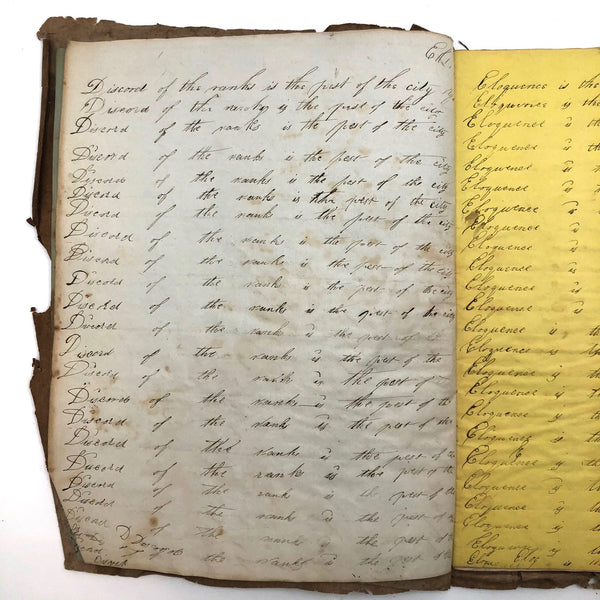 Discord of the ranks is the pest of the city
Discord of the ranks is the pest of the city
Discord of the ranks is the pest of the city
Discord of the ranks is the pest of the city
Discord of the ranks is the pest of the city
Discord of the ranks is the pest of the city
Discord of the ranks is the pest of the city
Discord of the ranks is the pest of the city
Discord of the ranks is the pest of the city
Discord of the ranks is the pest of the city
Discord of the ranks is the pest of the city
Discord of the ranks is the pest of
Discord of the ranks is the pest of the
Discord of the rank is the pest of
Discord of the ranks is the pest of the
Discord of the ranks is the pest of the
Discord of the ranks is the pest of the
Discord of the ranks is the pest of the
Discord of the ranks is pest of the
Discord of the ranks is the pest of the
of the ranks is the pest of
of the ranks is the pest of
Eloquence is the
Eloquence is the
Eloquence is the
Eloquence is th
Eloquence is
Eloquence is
Eloquence is
Eloquence is
Eloquence is
Eloquence is
Eloquence is
Eloquence is
Eloquence is th
Eloquence is
Eloquence is
Eloquence is the
Eloquence is the
Eloquence is the
Eloquence is the
Eloquence is
Eloquence is the
Eloquence is the
Eloquence is the